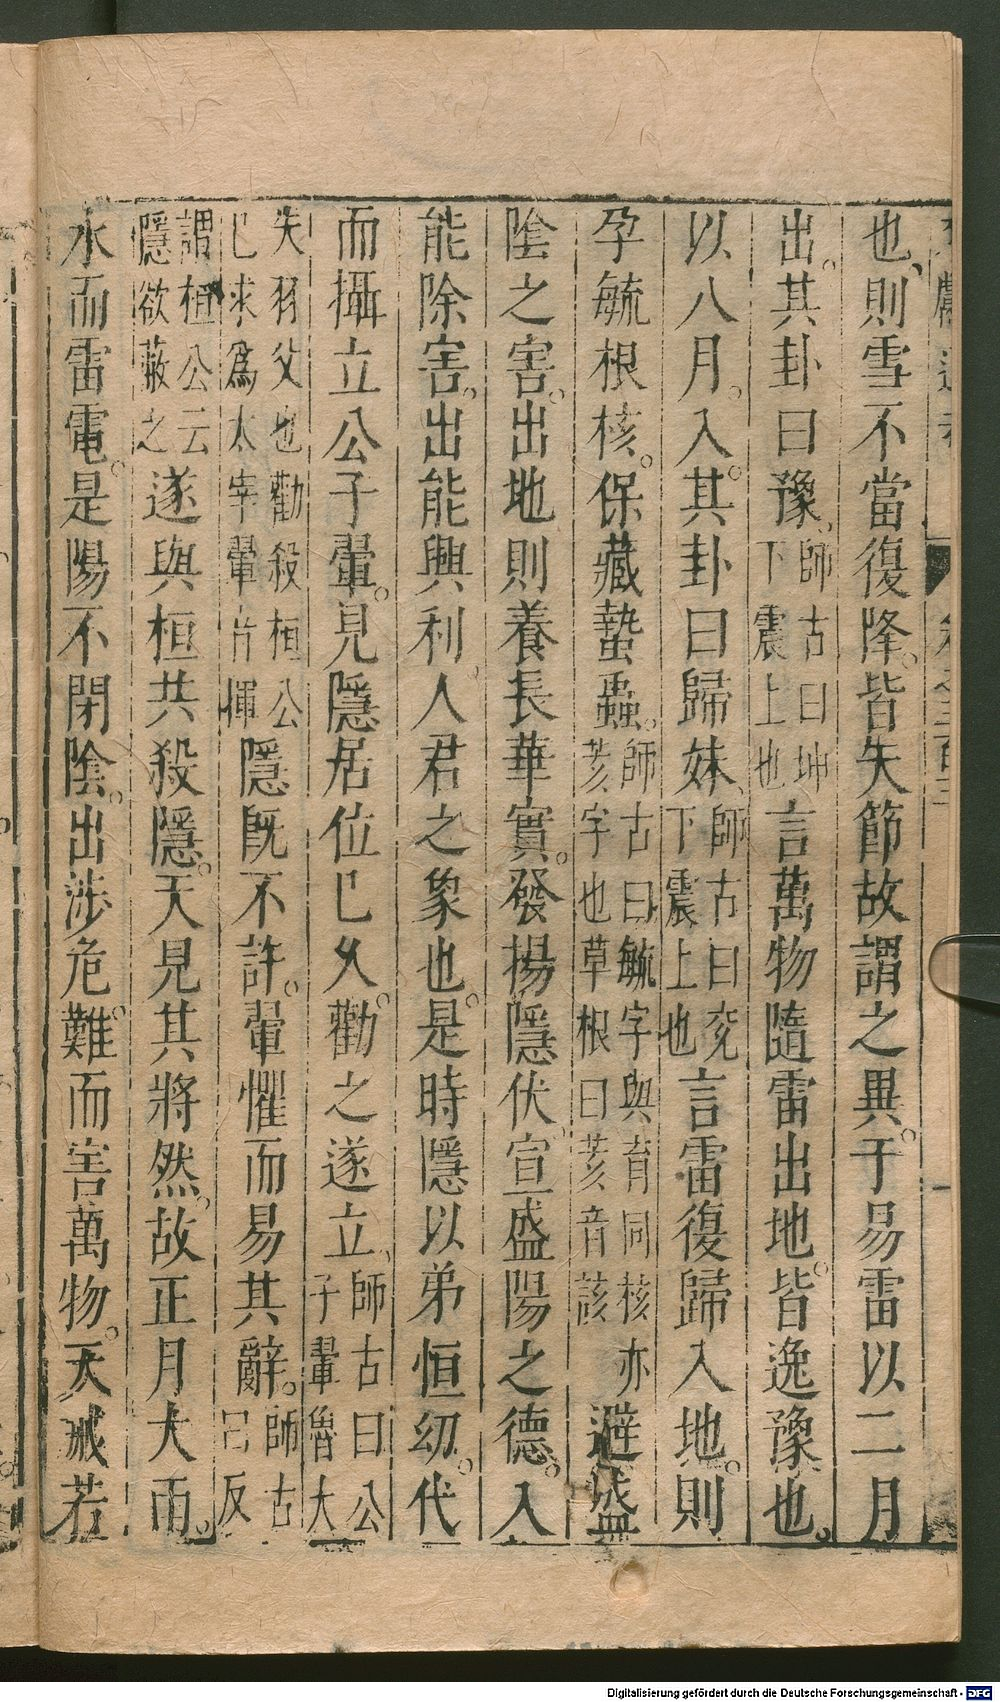 也、則雪不當復降。皆失節故謂之異。于易雷以二月
出。其卦曰豫、師古曰坤下震上也言萬物隨雷出地。皆逸豫也。
以八月。入。其卦曰歸妹、師古曰兖下震上也言雷復歸入地。則
孕毓根核。保藏蟄蟲。師古曰毓字與育同核亦荄字也草根曰荄音該避盛
隂之害。出地則養長華實。發揚隱伏、宣盛陽之德。入
能除害。出能興利。人君之象也。是時隱以弟恒幼。代
而攝立公子翬。見隱居位已久。勸之遂立。師古曰公子翬魯大
失羽父也勸殺桓公已求爲太宰翬片揮隱既不許。翬懼而易其辭。師古曰反
謂桓公云隱欲蔽之遂與桓共殺隱。天見其將然。故正月大雨。
水而雷電。是陽不閉隂。出涉危。難而害萬物。天戒若
Digitalisierung gefördert durch die Deutsche Forschungsgemeinschaft - DFG